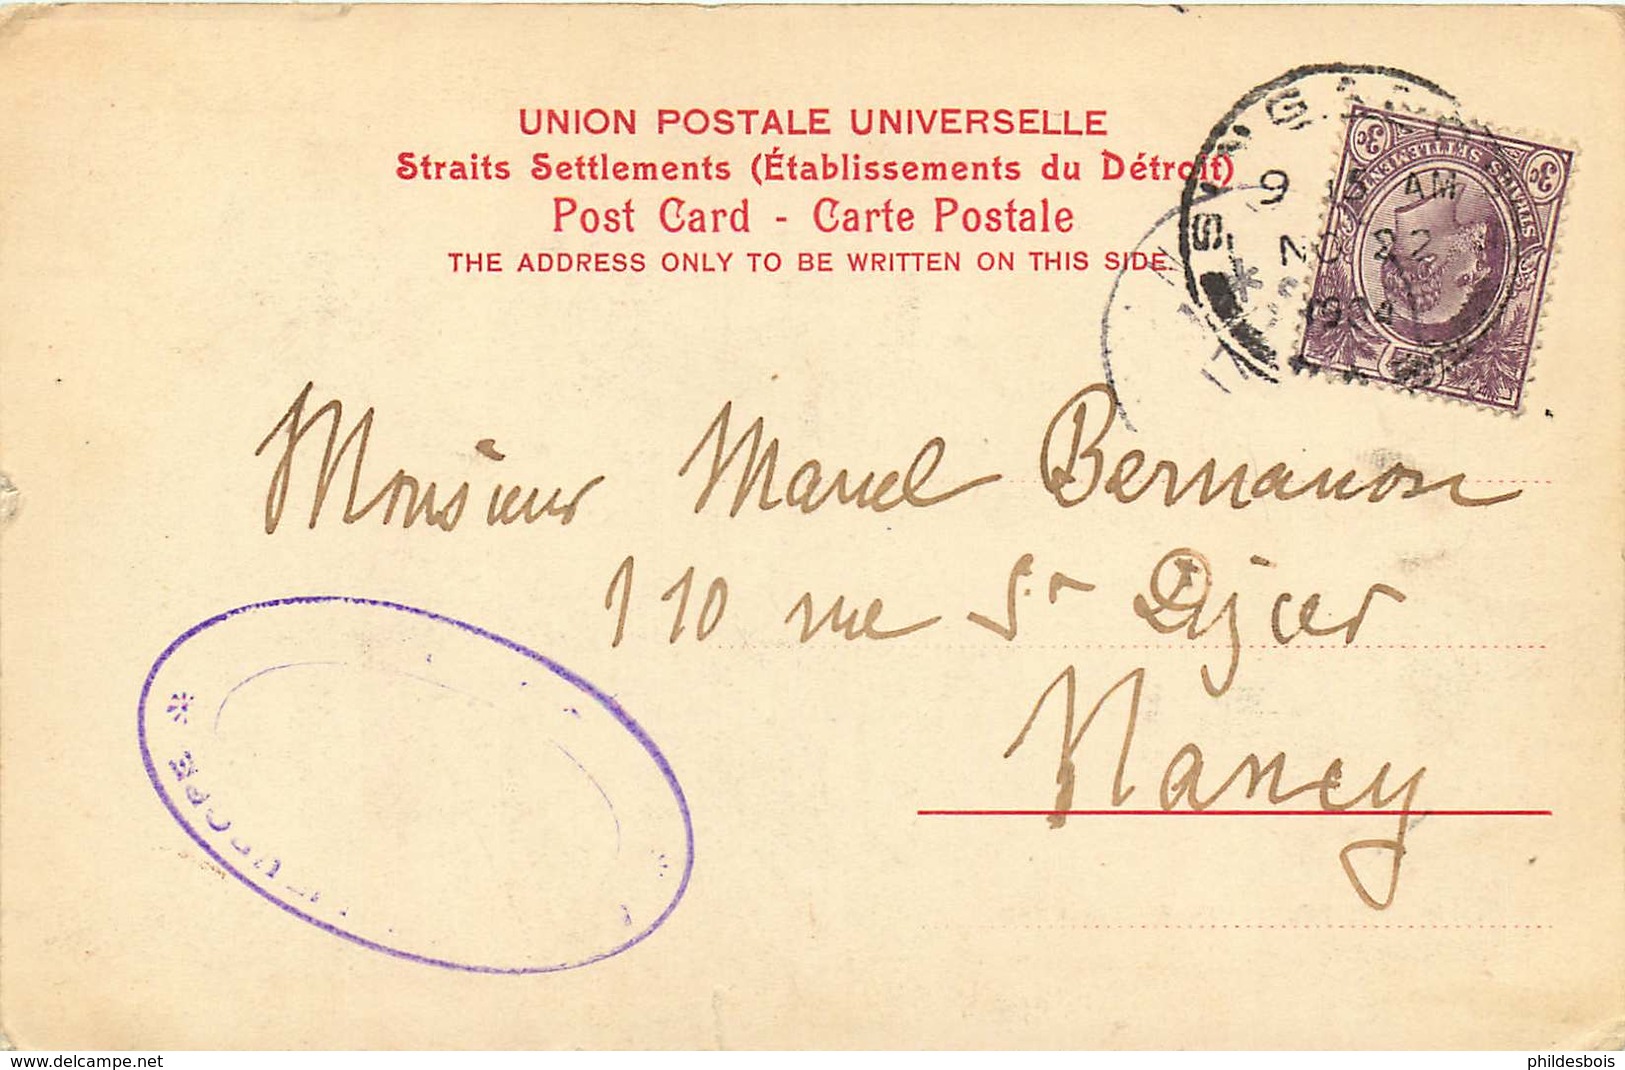 UNION POSTALE UNIVERSELLE
Straits Settlements (Établissements du Détroit)
Post Card - Carte Postale
THE ADDRESS ONLY TO BE WRITTEN ON THIS SIDE.
3c 3c
STRAITS SETTLEMENTS
AM
NO 22
1904
Monsieur Marcel Bernanose
110 rue St Dizier
Nancy
www.delcampe.net
phildesbois